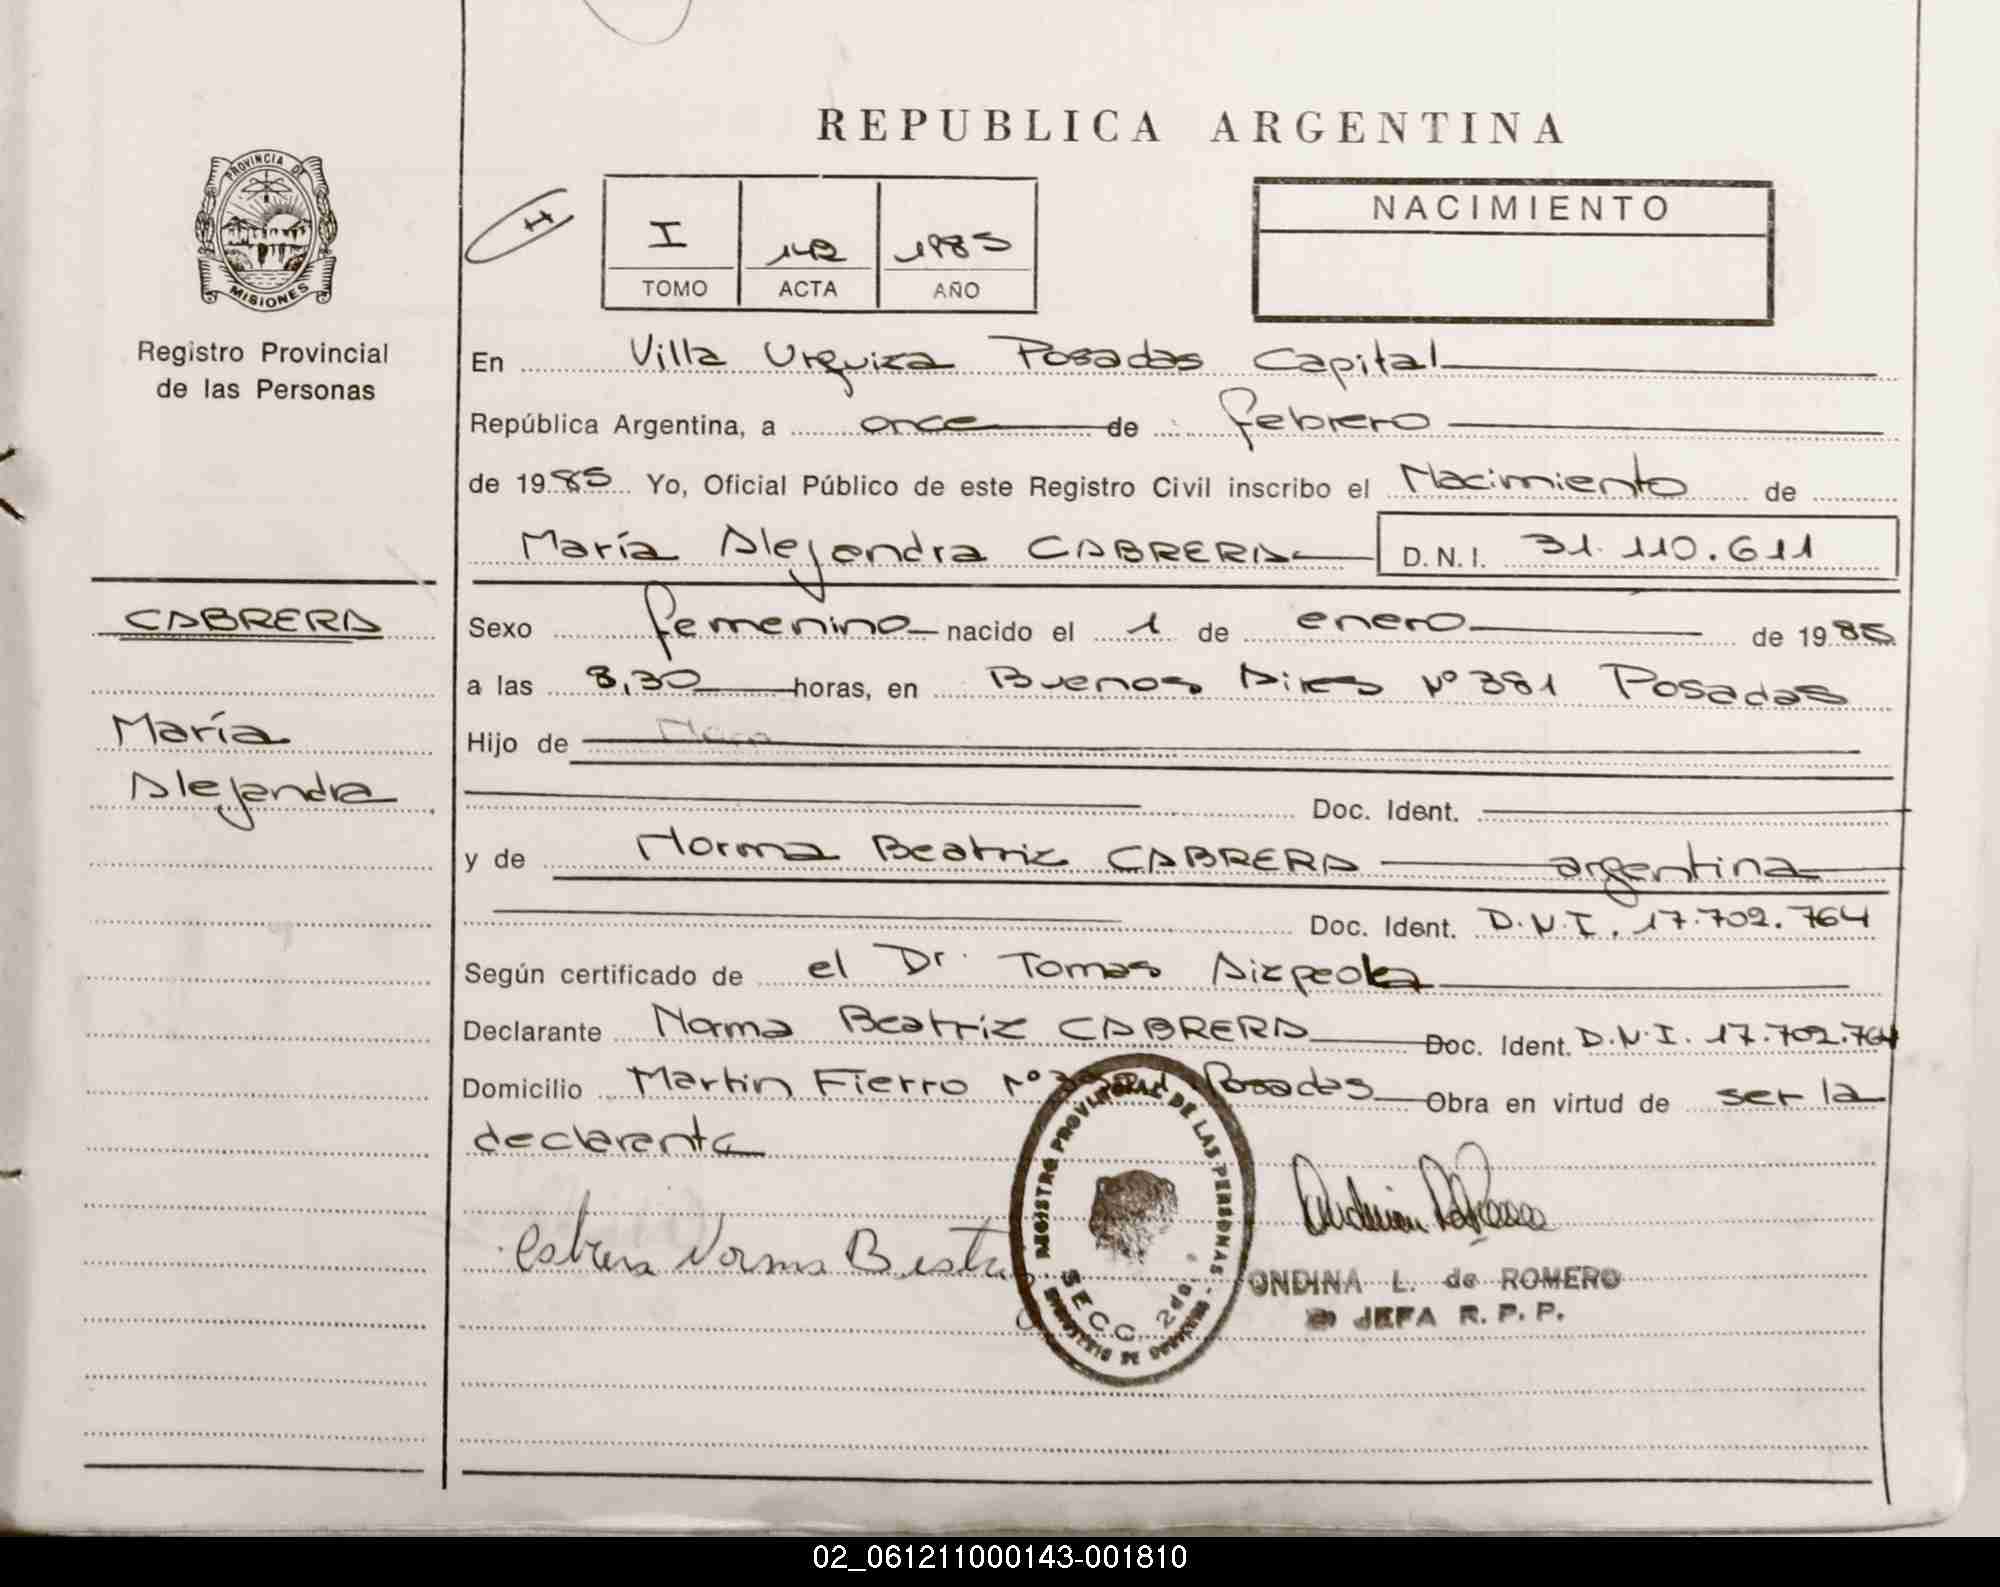 REPUBLICA ARGENTINA
PROVINCIA DE
MISIONES
Registro Provincial
de las Personas
H
I 142 1985
TOMO ACTA AÑO
NACIMIENTO
En Villa Urquiza Posadas Capital
República Argentina, a once de febrero
de 1985 Yo, Oficial Público de este Registro Civil inscribo el Nacimiento de
María Alejandra CABRERA D.N.I. 31.110.611
CABRERA
María
Alejandra
Sexo femenino nacido el 1 de enero de 1985
a las 8,30 horas, en Buenos Aires Nº 381 Posadas
Hijo de
Doc. Ident.
y de Norma Beatriz CABRERA argentina
Doc. Ident. D.N.I. 17.702.764
Según certificado de el Dr. Tomas Aizpeolea
Declarante Norma Beatriz CABRERA Doc. Ident. D.N.I. 17.702.764
Domicilio Martin Fierro Nº Posadas Obra en virtud de ser la
declarante
Cabrera Norma Beatriz
REGISTRO PROVINCIAL DE LAS PERSONAS
SECC. 2da.
ONDINA L. de ROMERO
JEFA R.P.P.
02_061211000143-001810